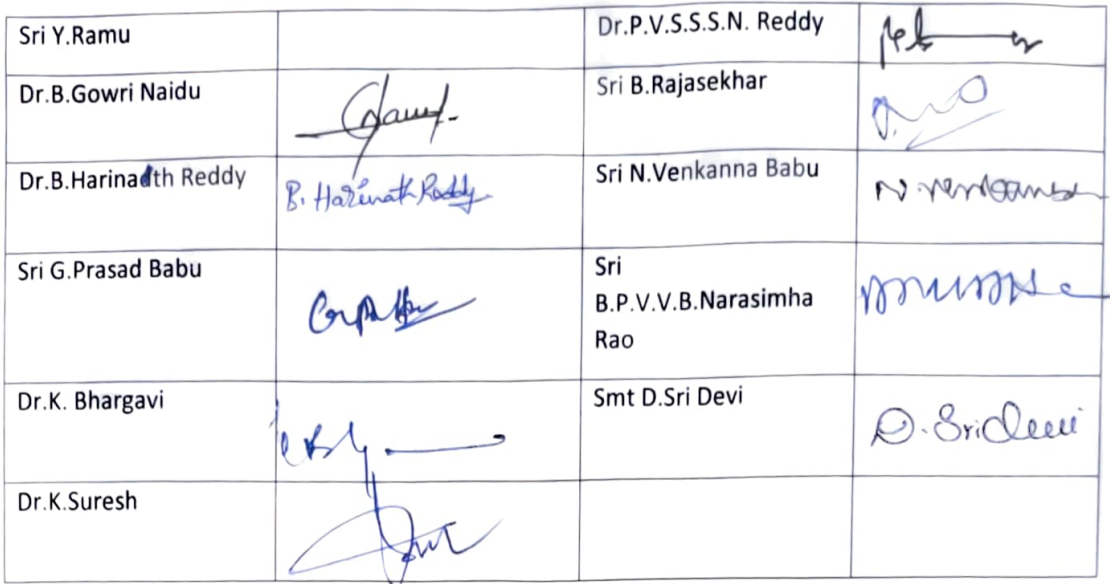 Sri Y.Ramu
Dr.P.V.S.S.S.N. Reddy
Dr.B.Gowri Naidu
Sri B.Rajasekhar
Dr.B.Harinadth Reddy
B. Harinath Reddy
Sri N.Venkanna Babu
N. Venkanna
Sri G.Prasad Babu
Sri
B.P.V.V.B.Narasimha
Rao
Dr.K. Bhargavi
Smt D.Sri Devi
D. Sridevi
Dr.K.Suresh